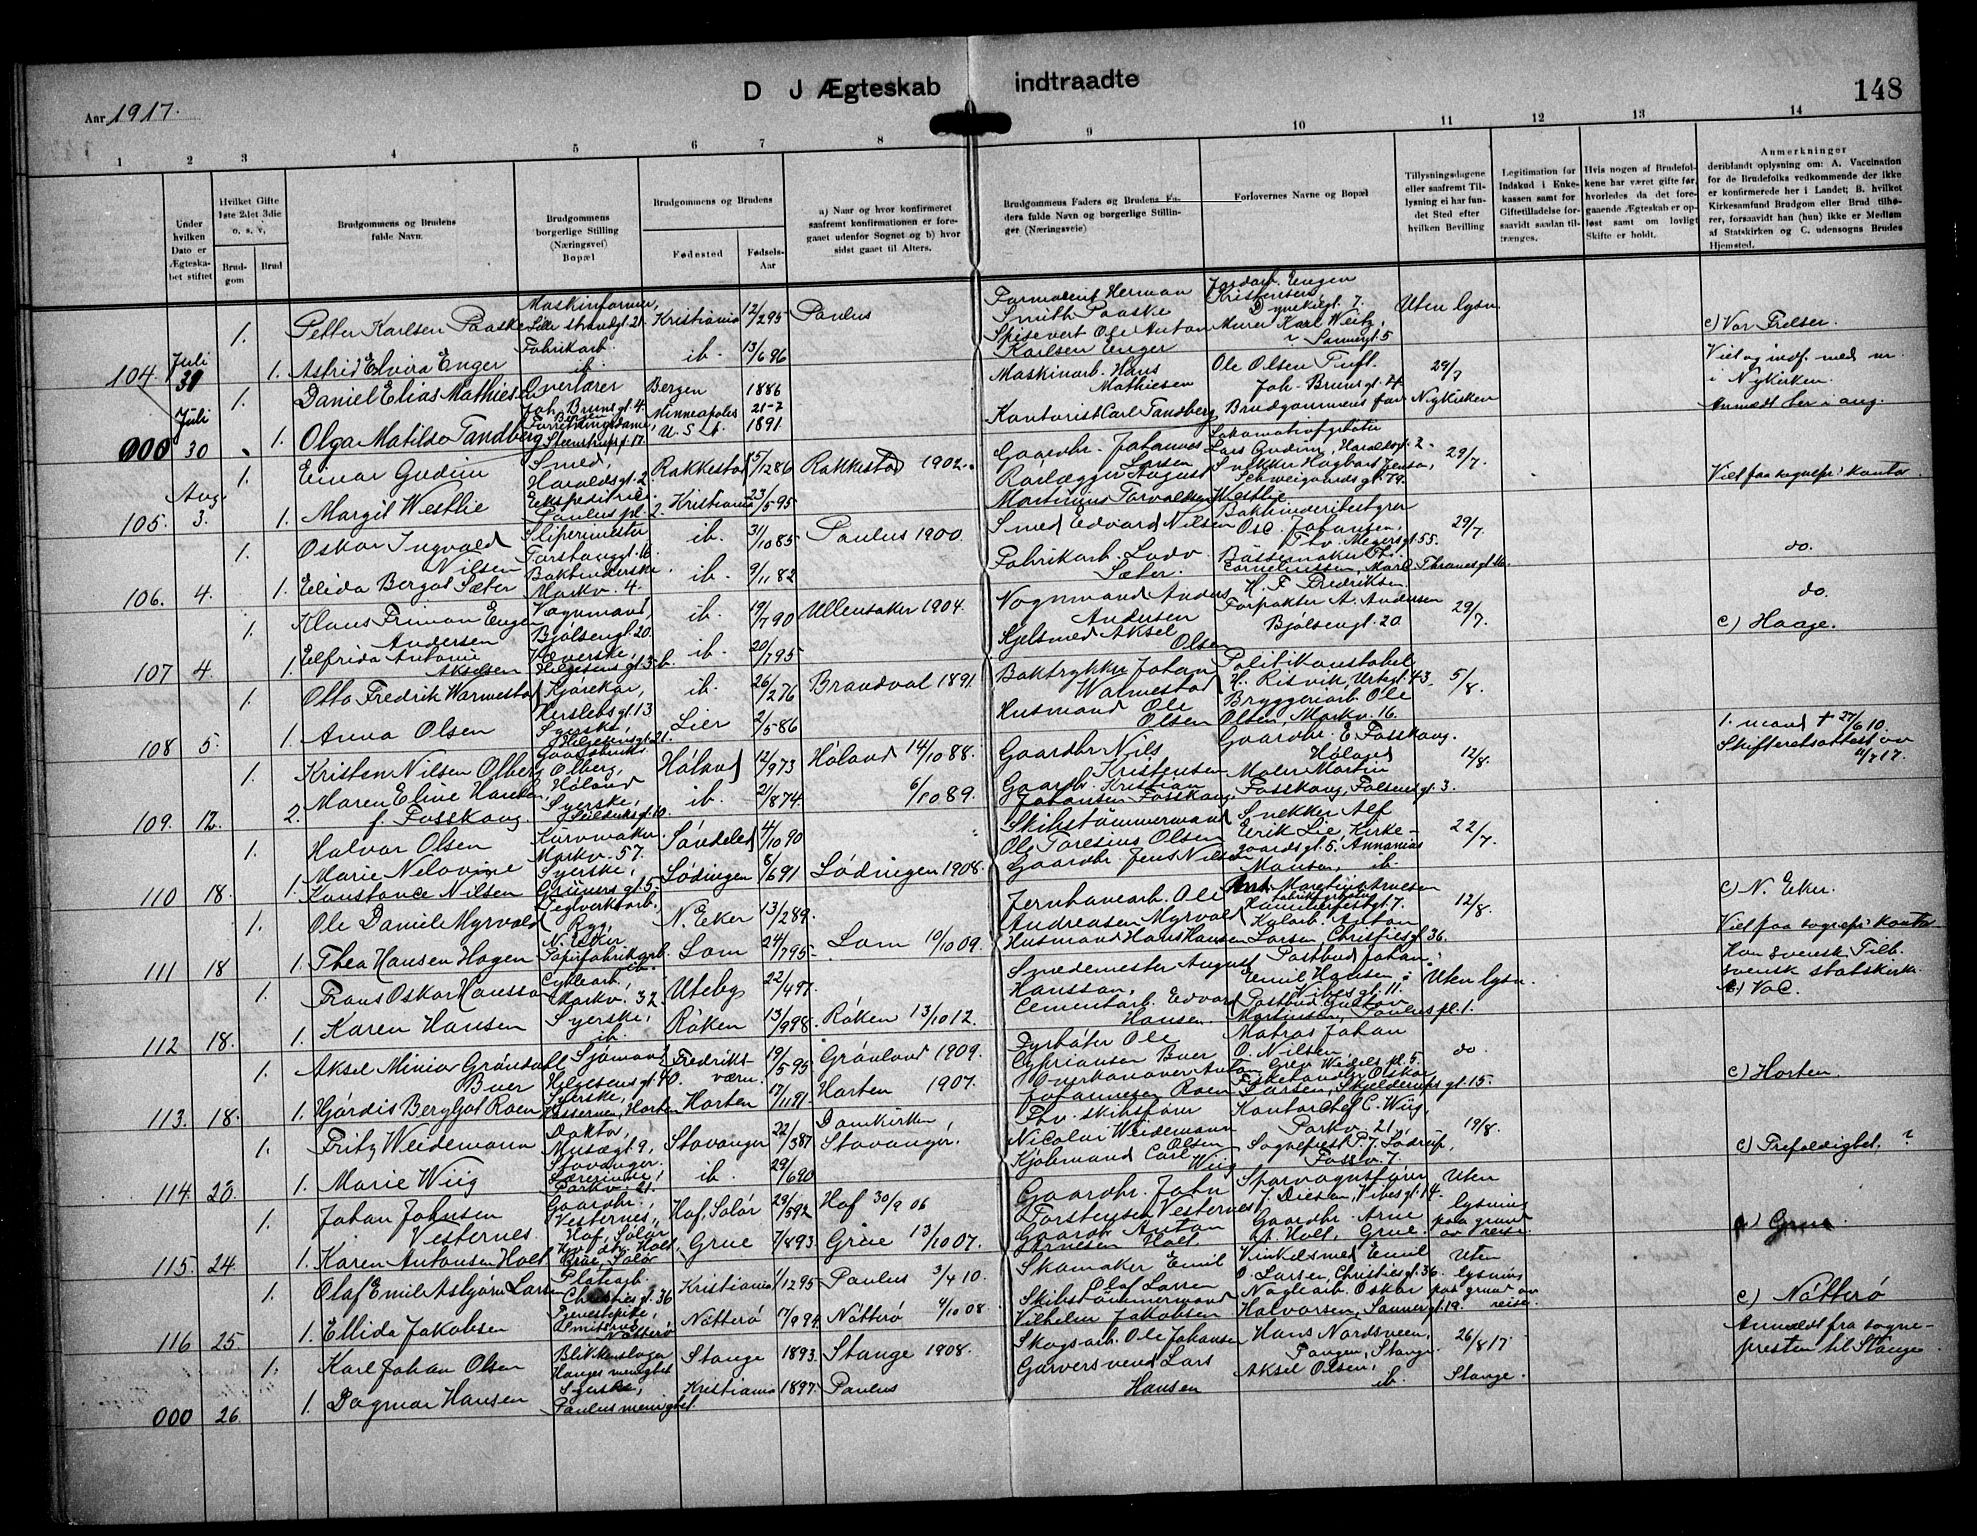 D J Ægteskab indtraadte
148
Aar 1917.
1 2 3 4 5 6 7 8 9 10 11 12 13 14
Under hvilken Dato er Ægteskabet stiftet
Hvilket Gifte 1ste 2det 3die o. s. v.
Brudgom
Brud
Brudgommens og Brudens fulde Navn.
Brudgommens borgerlige Stilling (Næringsvei) Bopæl
Brudgommens og Brudens
Fødested
Fødsels-Aar
a) Naar og hvor konfirmeret saafremt konfirmationen er foregaaet udenfor Sognet og b) hvor sidst gaaet til Alters.
Brudgommens Faders og Brudens Faders fulde Navn og borgerlige Stillinger (Næringsveie)
Forlovernes Navne og Bopæl
Tillysningsdagene eller saafremt Tillysning ei har fundet Sted efter hvilken Bevilling
Legitimation for Indskud i Enkekassen samt for Giftetilladelse forsaavidt saadan tiltrænges.
Hvis nogen af Brudefolkene har været gifte før, hvorledes da det foregaaende Ægteskab er opløst samt om lovligt Skifte er holdt.
Anmerkninger
deriblandt oplysning om: A. Vaccination for de Brudefolks vedkommende der ikke er konfirmerede her i Landet; B. hvilket Kirkesamfund Brudgom eller Brud tilhører, forsaavidt han (hun) ikke er Medlem af Statskirken og C. udensogns Brudes Hjemsted.
1. Petter Karlsen Paaske Kristiania 12/2 95 Paulus Herman Smith Paaske Kristensen Uten lysn.
104 Juli 31 1. Astrid Elvira Enger Fabrikarb. ib. ib. 13/6 96 Spisevert Ole Anton Karlsen Enger Murer Karl Weitz, Sannergt. 5 c) Vor Frelser.
1. Daniel Elias Mathiesen Overlærer Joh. Brunsgt. 4. Bergen Bergen 1886 Maskinarb. Hans Mathiesen Ole Olsen Tuft Joh. Brunsgt. 4 29/7 Nykirken i Nykirken.
000 Juli 30 1. Olga Matilda Tandberg Minneapolis U. S. A. 21-2 1891. Kontorist Carl Tandberg Brudgommens far Anmeldt her i aug.
1. Einar Gudim Smed, Haraldsgt. 2 Rakkestad 15/12 86 Rakkestad 1902. Gaardbr. Johannes Larsen Lars Gudim, Haraldsgt. 2 29/7.
105. Aug. 3. 1. Margit Westlie Ekspeditrice Paulus pl. 2. Kristiania 23/5 95 Rørlægger August Martinius Torvaldsen Westlie Snekker Hagbart Jensen, Schweigaardsgt. 79. Viet paa sognepr. kontor
1. Oskar Ingvald Nilsen Sliperimester ib. 31/10 85 Paulus 1900. Smed Edvard Nilsen Bokbinderibestyrer Osc. Johansen, Thv. Meyersgt. 55. 29/7.
106. 4. 1. Elida Bergot Sæter Bokbinderske Markv. 4. ib. 9/11 82 Fabrikarb. Ludv. Sæter. do.
1. Klaus Friman Engen Andersen Vognmand, Bjølsengt. 20. ib. 19/7 90 Ullensaker 1904. Vognmand Anders Andersen Forpakter A. Andersen Bjølsengt. 20 29/7. do.
107 4. 1. Elfrida Antonie Akselsen Væverske, Helgesensgt. 3 b. ib. 20/7 95 Aksel Olsen c) Hauge.
1. Otto Fredrik Warmestad Kjørekar, Herslebsgt. 13 ib. 26/2 76 Brandval 1891. Boktrykker Johan Warmestad Politikonstabel H. Risvik, Urtegt. 43 5/8.
108 5. 1. Anna Olsen Syerske, Helgesensgt. 21. Lier 2/5 86 Husmand Ole Olsen Bryggeriarb. Ole Olsen, Markv. 16.
1. Kristian Nilsen Olberg Gaardbruker Olberg, Høland Høland 12/9 73 Høland 14/10 88. Gaardbr. Nils Kristensen Gaardbr. E. Fosskaug. Høland 12/8.
109. 12. 2. Maren Eline Hansen f. Fosskaug. Syerske, ib. 21/8 74. 6/10 89. Gaardbr. Kristian Johansen Fosskaug Maler Martin Fosskaug, 1. mand + 27/6 10. Skifteretsattest av 11/7 17.
1. Halvar Olsen Kurvmaker Markv. 57. Søndeled 4/10 90 Skibstømmermand Ole Tarelius Olsen Snekker Alf Erik Lie, Kirkegaardsgt. 5. 22/7.
110 18. 1. Marie Nelovine Konstance Nilsen Syerske, Grünersgt. 5. Lødingen 5/6 91 Lødingen 1908. Gaardbr. Jens Nilsen Annanias Hansen ib.
1. Ole Daniel Myrvold Teglverksarb. N. Eker N. Eker 13/2 89. Jernbanearb. Ole Andreasen Myrvold 12/8. c) N. Eker.
111 18 1. Thea Hansen Hagen Papirfabrikarb. ib. Lom 24/7 95. Lom 10/10 09. Husmand Hans Hansen Kularb. Anton Larsen, Christiesgt. 36. Viet paa sognepr. kontor
1. Frans Oskar Hansson Cyklearb., Markv. 32. Uteby 22/4 97. Smedemester August Hansson, Postbud Johan Emil Hansen, Vibesgt. 11. Uten lysn. Han svensk Tilh. svensk statskirke.
112 18. 1. Karen Hansen Syerske, ib. Røken 13/9 98. Røken 13/10 12. Cementarb. Edvard Hansen Postbud Gustav Martinsen, Paulus pl. 1.
1. Aksel Minian Grøndahl Buer Sjømand Helgesensgt. 40. Fredriksværn. 19/5 95 Grønland 1909. Fyrbøter Ole Cyprianson Buer Matros Johan O. Nilsen do.
113. 18. 1. Hjørdis Bergljot Roen Syerske, Horten Horten 17/11 91 Horten 1907. Overkanoner Anton Johannesen Roen Fiskehandler Oskar Larsen, Skjelderupsgt. 15. c) Horten.
1. Fritz Weidemann Doktor, Musegt. 9, Stavanger. Stavanger 22/3 87 Domkirken Stavanger. Fhv. skibsfører Nicolai Weidemann Kontorchef C. Wiig, Parkv. 21, 19/8.
114. 23. 1. Marie Wiig Lærerinde, Parkv. 21. ib. 29/6 90 Kjøbmand Carl Olsen Wiig c) Trefoldighet, ?
1. Johan Johnsen Vesternes. Gaardbr. Vesternes, Hof, Solør Hof, Solør 29/5 92 Hof 30/9 06 Gaardbr. John Torstensen Vesternes Sporvognsfører J. Diesen, Vibesgt. 14. Uten lysning paa grund av reise
115. 24. 1. Karen Antonsen Holt Grue 7/8 93. Grue 13/10 07. Gaardbr. Anton Arnesen Holt Gaardbr. Arne A. Holt, Grue. c) Grue
1. Olaf Emil Asbjørn Larsen Platearb. Christiesgt. 36 Kristiania 11/12 95 Paulus 3/4 10. Skomaker Emil Olaf Larsen Vinkelsmed Emil O. Larsen, Christiesgt. 36. Uten lysning paa grund av reise
116 25. 1. Ellida Jakobsen Tjenestepike, Nøtterø Nøtterø 17/9 94. Nøtterø 4/10 08. Skibstømmermand Vilhelm Jakobsen Naglearb. Oskar Halvorsen, Sannergt. 19. c) Nøtterø
1. Karl Johan Olsen Blikkenslager Hauges menighet Stange 1893. Stange 1908. Skogsarb. Ole Johansen Hans Nordsveen, Tangen, Stange. 26/8 17 Stange. Anmeldt fra sognepresten til Stange
000 26. 1. Dagmar Hansen Syerske, Paulus menighet. Kristiania 1897. Paulus Garversvend Lars Hansen Aksel Olsen, ib.